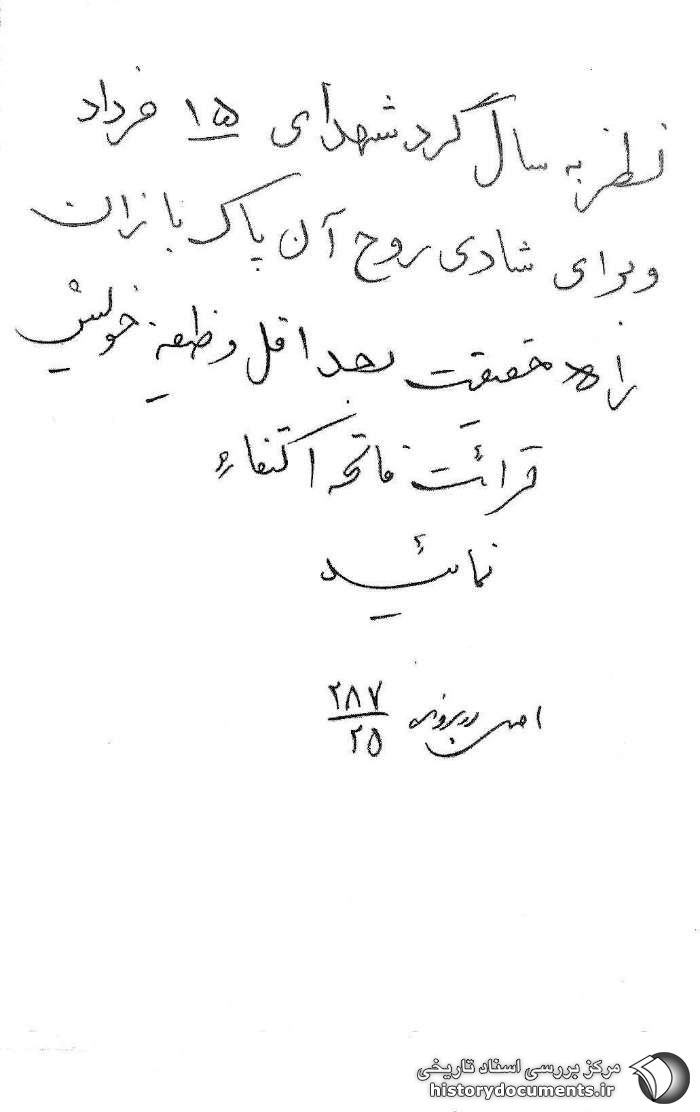 نظر به سال گرد شهدای ۱۵ خرداد
و برای شادی روح آن پاک بازان
راه حقیقت بحداقل وظیفهٔ خویش
قرائت فاتحه اکتفاء
نمائید
اصل در پرونده ۲۸۷/۲۵
مرکز بررسی اسناد تاریخی
historydocuments.ir